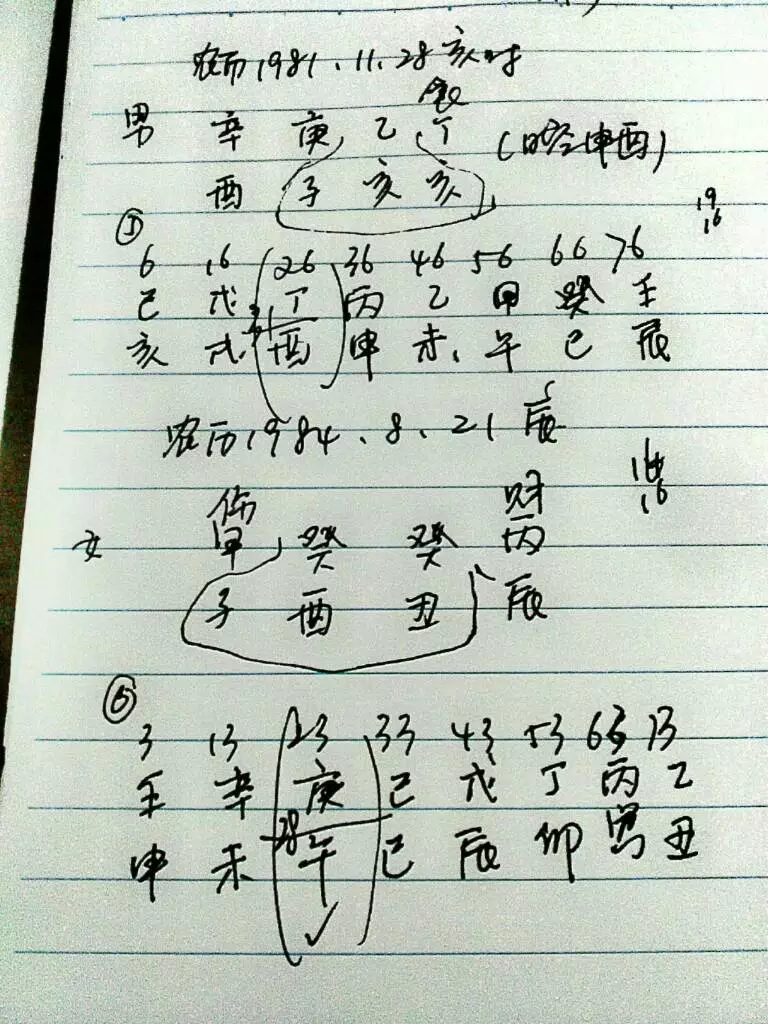 农历1981.11.28亥时
食
男 辛 庚 乙 丁 (时空申酉)
酉 子 亥 亥
19
16
①
6 16 26 36 46 56 66 76
己 戊 丁 丙 乙 甲 癸 壬
亥 戌 31 酉 申 未 午 巳 辰
农历1984.8.21 辰
伤 财
16
女 甲 癸 癸 丙
子 酉 丑 辰
⑥
3 13 23 33 43 53 63 73
壬 辛 庚 己 戊 丁 丙 乙
申 未 28 午 巳 辰 卯 寅 丑